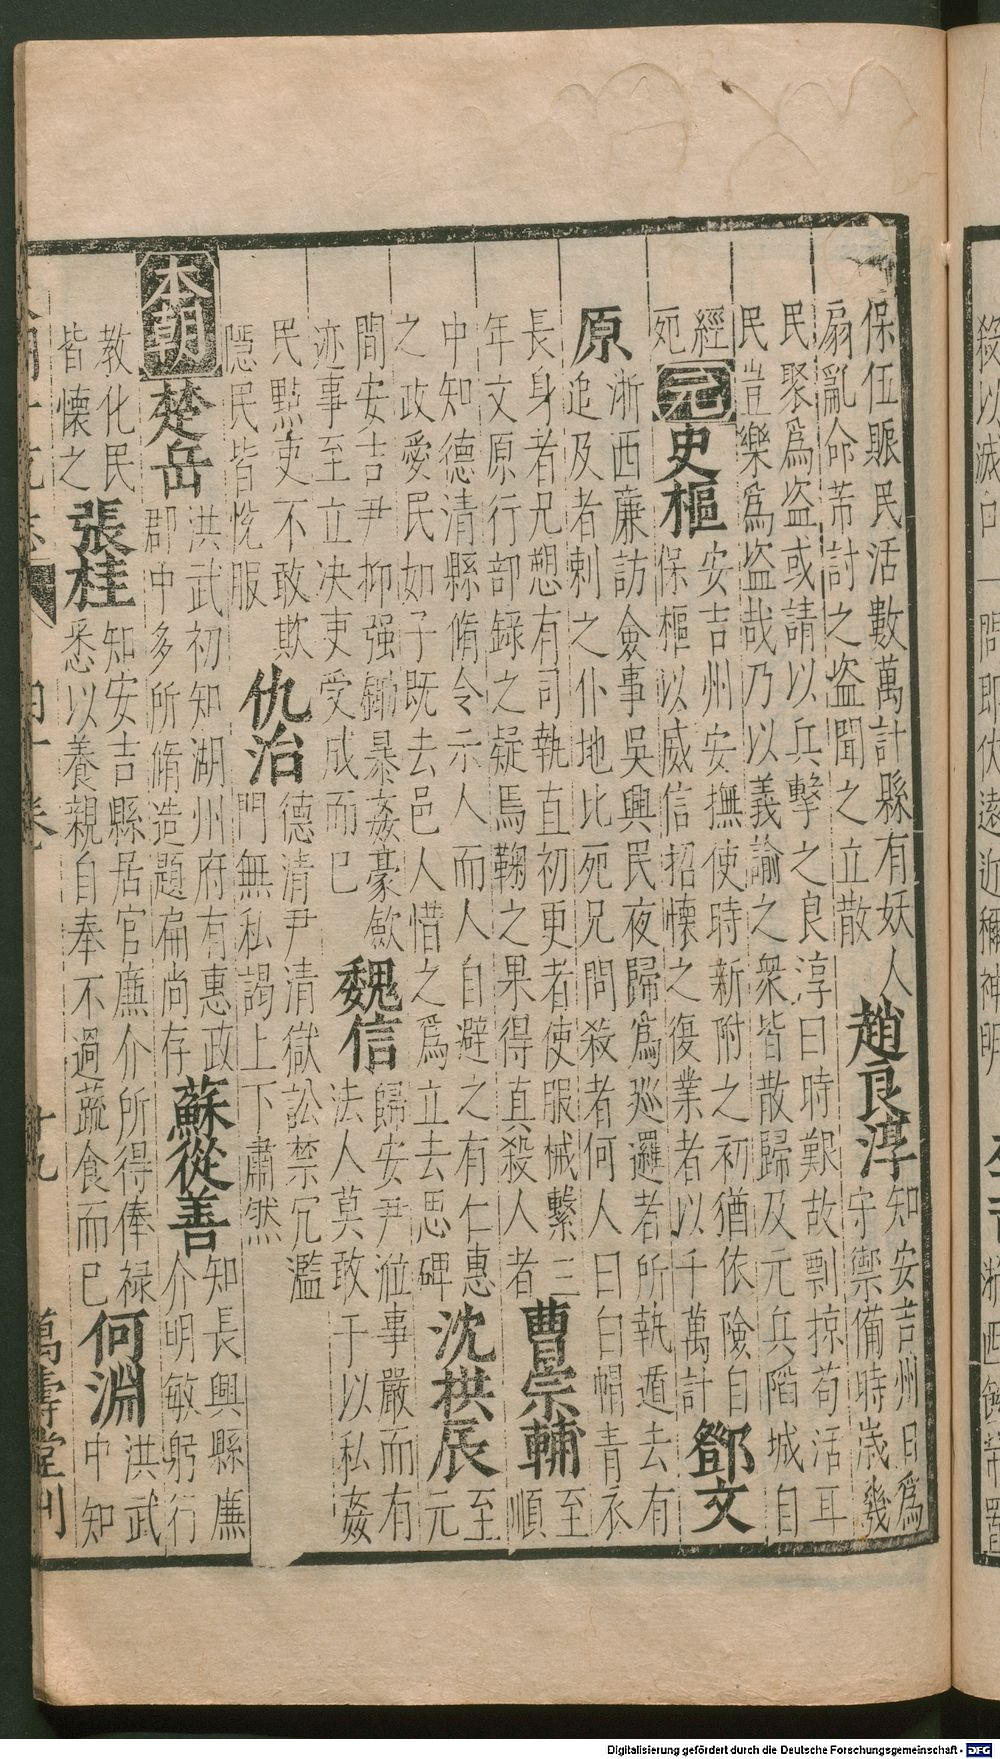 保伍賑民活數萬計縣有妖人
扇亂命芾討之盜聞之立散
趙良淳
知安吉州日為
守禦備時歳幾
民聚為盜或請以兵擊之良淳曰時艱故剽掠苟活耳
民豈樂為盜哉乃以義諭之衆皆散歸及元兵陷城自
經
死
元
史樞
安吉州安撫使時新附之初猶依險自
保樞以威信招懷之復業者以千萬計
鄧文
原
浙西廉訪僉事吳興民夜歸為巡邏者所執遁去有
追及者刺之仆地比死兄問殺者何人曰白帽青衣
長身者兄愬有司執直初更者使服械繫三
年文原行部録之疑焉鞠之果得真殺人者
曹宗輔
至
順
中知德清縣脩令示人而人自避之有仁惠
之政愛民如子既去邑人惜之為立去思碑
沈栱辰
至
元
間安吉尹抑强鋤暴姦豪歛
迹事至立决吏受成而已
魏信
歸安尹涖事嚴而有
法人莫敢于以私姦
民黠吏不敢欺
隠民皆恱服
仇治
德清尹清獄訟禁冗濫
門無私謁上下肅然
本朝
楚岳
洪武初知湖州府有惠政
郡中多所脩造題扁尚存
蘇從善
知長興縣廉
介明敏躬行
教化民
皆懷之
張桂
知安吉縣居官廉介所得俸禄
悉以養親自奉不過蔬食而已
何淵
洪武
中知
萬壽堂刊
Digitalisierung gefördert durch die Deutsche Forschungsgemeinschaft - DFG